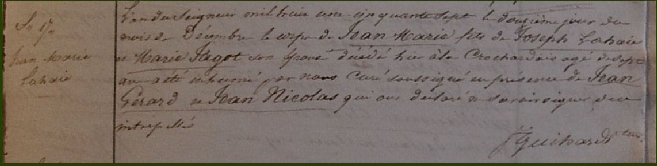 S. 17e
Jean Marie
Lahaie
L'an du Seigneur mil huit cent cinquante sept le douzième jour du
mois de Décembre le corps de Jean Marie fils de Joseph Lahaie
et Marie Hagot son épouse décédé hier à la Crochardais agé de sept
ans a été inhumé par nous Curé soussigné en présence de Jean
Gérard et Jean Nicolas qui ont déclaré ne savoir signer de ce
interpellés
Guihard